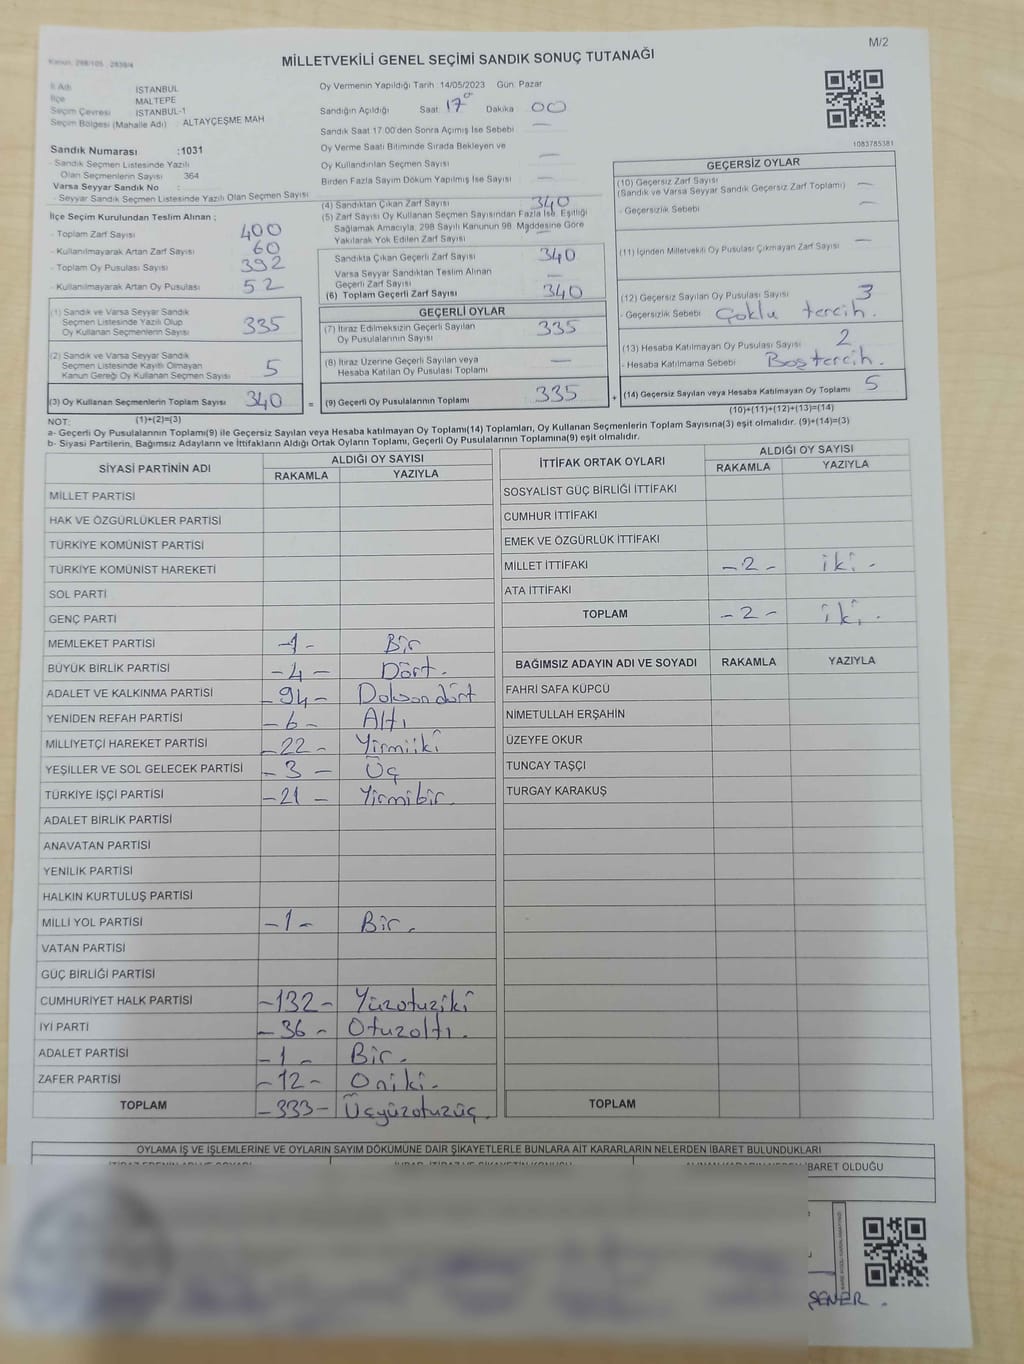 M/2
Kanun, 298/105, 2839/4
MİLLETVEKİLİ GENEL SEÇİMİ SANDIK SONUÇ TUTANAĞI
İl Adı İSTANBUL
İlçe MALTEPE
Seçim Çevresi İSTANBUL-1
Seçim Bölgesi (Mahalle Adı) : ALTAYÇEŞME MAH
Sandık Numarası :1031
- Sandık Seçmen Listesinde Yazılı
Olan Seçmenlerin Sayısı 364
Varsa Seyyar Sandık No :
- Seyyar Sandık Seçmen Listesinde Yazılı Olan Seçmen Sayısı
İlçe Seçim Kurulundan Teslim Alınan ;
- Toplam Zarf Sayısı 400
- Kullanılmayarak Artan Zarf Sayısı 60
- Toplam Oy Pusulası Sayısı 392
- Kullanılmayarak Artan Oy Pusulası 52
(1) Sandık ve Varsa Seyyar Sandık
Seçmen Listesinde Yazılı Olup
Oy Kullanan Seçmenlerin Sayısı 335
(2) Sandık ve Varsa Seyyar Sandık
Seçmen Listesinde Kayıtlı Olmayan
Kanun Gereği Oy Kullanan Seçmen Sayısı 5
(3) Oy Kullanan Seçmenlerin Toplam Sayısı 340 =
Oy Vermenin Yapıldığı Tarih :14/05/2023 Gün: Pazar
Sandığın Açıldığı Saat 17 Dakika 00
Sandık Saat 17.00'den Sonra Açımış İse Sebebi —
Oy Verme Saati Bitiminde Sırada Bekleyen ve
Oy Kullandırılan Seçmen Sayısı —
Birden Fazla Sayım Döküm Yapılmış İse Sayısı —
(4) Sandıktan Çıkan Zarf Sayısı 340
(5) Zarf Sayısı Oy Kullanan Seçmen Sayısından Fazla İse, Eşitliği
Sağlamak Amacıyla, 298 Sayılı Kanunun 98. Maddesine Göre
Yakılarak Yok Edilen Zarf Sayısı —
Sandıkta Çıkan Geçerli Zarf Sayısı 340
Varsa Seyyar Sandıktan Teslim Alınan
Geçerli Zarf Sayısı —
(6) Toplam Geçerli Zarf Sayısı 340
GEÇERLİ OYLAR
(7) İtiraz Edilmeksizin Geçerli Sayılan
Oy Pusulalarının Sayısı 335
(8) İtiraz Üzerine Geçerli Sayılan veya
Hesaba Katılan Oy Pusulası Toplamı —
(9) Geçerli Oy Pusulalarının Toplamı 335 +
1083785381
GEÇERSİZ OYLAR
(10) Geçersiz Zarf Sayısı
(Sandık ve Varsa Seyyar Sandık Geçersiz Zarf Toplamı) —
- Geçersizlik Sebebi —
(11) İçinden Milletvekili Oy Pusulası Çıkmayan Zarf Sayısı —
(12) Geçersiz Sayılan Oy Pusulası Sayısı 3
- Geçersizlik Sebebi Çoklu tercih.
(13) Hesaba Katılmayan Oy Pusulası Sayısı 2
- Hesaba Katılmama Sebebi Boş tercih.
(14) Geçersiz Sayılan veya Hesaba Katılmayan Oy Toplamı 5
NOT: (1)+(2)=(3) (10)+(11)+(12)+(13)=(14)
a- Geçerli Oy Pusulalarının Toplamı(9) ile Geçersiz Sayılan veya Hesaba katılmayan Oy Toplamı(14) Toplamları, Oy Kullanan Seçmenlerin Toplam Sayısına(3) eşit olmalıdır. (9)+(14)=(3)
b- Siyasi Partilerin, Bağımsız Adayların ve İttifakların Aldığı Ortak Oyların Toplamı, Geçerli Oy Pusulalarının Toplamına(9) eşit olmalıdır.
SİYASİ PARTİNİN ADI ALDIĞI OY SAYISI
RAKAMLA YAZIYLA
MİLLET PARTİSİ
HAK VE ÖZGÜRLÜKLER PARTİSİ
TÜRKİYE KOMÜNİST PARTİSİ
TÜRKİYE KOMÜNİST HAREKETİ
SOL PARTİ
GENÇ PARTİ
MEMLEKET PARTİSİ -1- Bir
BÜYÜK BİRLİK PARTİSİ -4- Dört.
ADALET VE KALKINMA PARTİSİ -94- Doksandört
YENİDEN REFAH PARTİSİ -6- Altı
MİLLİYETÇİ HAREKET PARTİSİ -22- Yirmiiki
YEŞİLLER VE SOL GELECEK PARTİSİ -3- Üç
TÜRKİYE İŞÇİ PARTİSİ -21- Yirmibir.
ADALET BİRLİK PARTİSİ
ANAVATAN PARTİSİ
YENİLİK PARTİSİ
HALKIN KURTULUŞ PARTİSİ
MİLLİ YOL PARTİSİ -1- Bir.
VATAN PARTİSİ
GÜÇ BİRLİĞİ PARTİSİ
CUMHURİYET HALK PARTİSİ -132- Yüzotuziki
İYİ PARTİ -36- Otuzaltı.
ADALET PARTİSİ -1- Bir.
ZAFER PARTİSİ -12- Oniki.
TOPLAM -333- Üçyüzotuzüç.
İTTİFAK ORTAK OYLARI ALDIĞI OY SAYISI
RAKAMLA YAZIYLA
SOSYALİST GÜÇ BİRLİĞİ İTTİFAKI
CUMHUR İTTİFAKI
EMEK VE ÖZGÜRLÜK İTTİFAKI
MİLLET İTTİFAKI -2- iki.
ATA İTTİFAKI
TOPLAM -2- iki.
BAĞIMSIZ ADAYIN ADI VE SOYADI RAKAMLA YAZIYLA
FAHRİ SAFA KÜPCÜ
NİMETULLAH ERŞAHİN
ÜZEYFE OKUR
TUNCAY TAŞÇI
TURGAY KARAKUŞ
TOPLAM
OYLAMA İŞ VE İŞLEMLERİNE VE OYLARIN SAYIM DÖKÜMÜNE DAİR ŞİKAYETLERLE BUNLARA AİT KARARLARIN NELERDEN İBARET BULUNDUKLARI
İBARET OLDUĞU
ŞENER.